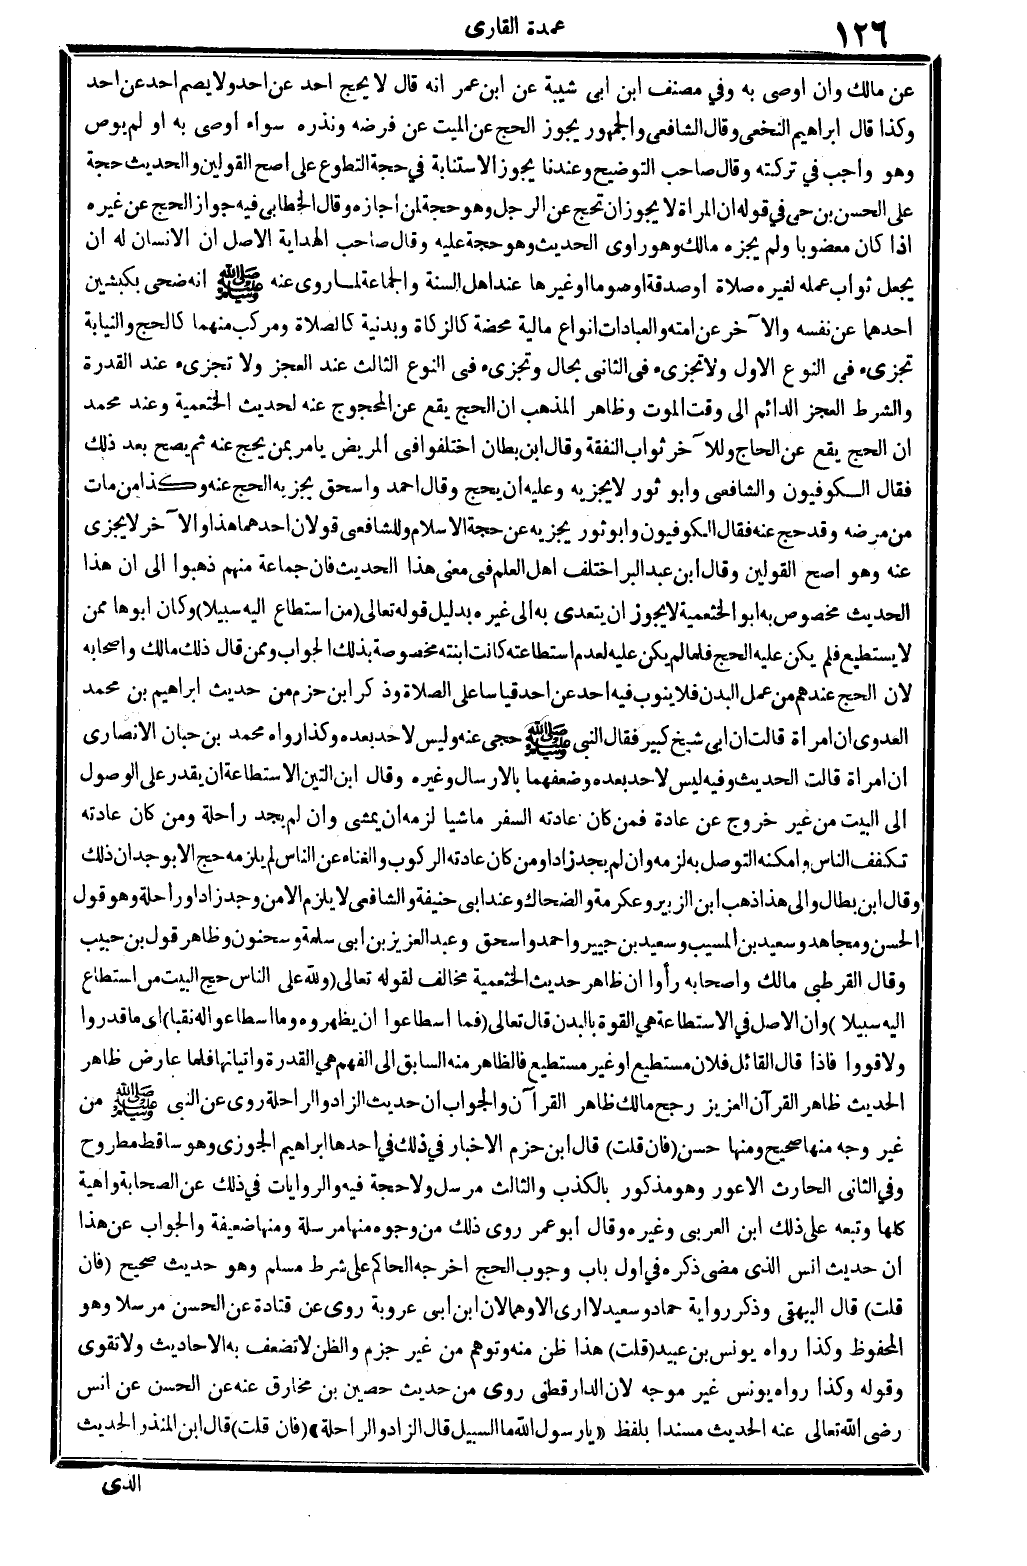 ١٢٦
عمدة القارى
عن مالك وان اوصى به وفي مصنف ابن ابى شيبة عن ابن عمر انه قال لا يحج احد عن احد ولا يصم احد عن احد
وكذا قال ابراهيم النخعى وقال الشافعى والجمهور يجوز الحج عن الميت عن فرضه ونذره سواء اوصى به او لم يوص
وهو واجب في تركته وقال صاحب التوضيح وعندنا يجوز الاستنابة في حجة التطوع على اصح القولين والحديث حجة
على الحسن بن حى فى قوله ان المرأة لا يجوز ان تحج عن الرجل وهو حجة لمن اجازه وقال الخطابى فيه جواز الحج عن غيره
اذا كان معضوبا ولم يجزه مالك وهو راوى الحديث وهو حجة عليه وقال صاحب الهداية الاصل ان الانسان له ان
يجعل ثواب عمله لغيره صلاة او صدقة او صوما او غيرها عند اهل السنة والجماعة لما روى عنه ﷺ انه ضحى بكبشين
احدهما عن نفسه والآخر عن امته والعبادات انواع مالية محضة كالزكاة وبدنية كالصلاة ومركب منهما كالحج والنيابة
تجزىء فى النوع الاول ولا تجزىء فى الثانى بحال وتجزىء فى النوع الثالث عند العجز ولا تجزىء عند القدرة
والشرط العجز الدائم الى وقت الموت وظاهر المذهب ان الحج يقع عن المحجوج عنه لحديث الخثعمية وعند محمد
ان الحج يقع عن الحاج وللآخر ثواب النفقة وقال ابن بطان اختلفوا فى المريض يامر بمن يحج عنه ثم يصح بعد ذلك
فقال الكوفيون والشافعى وابو ثور لا يجزيه وعليه ان يحج وقال احمد واسحق يجزيه الحج عنه وكذا من مات
من مرضه وقد حج عنه فقال الكوفيون وابو ثور يجزيه عن حجة الاسلام وللشافعى قولان احدهما هذا والآخر لا يجزى
عنه وهو اصح القولين وقال ابن عبد البر اختلف اهل العلم فى معنى هذا الحديث فان جماعة منهم ذهبوا الى ان هذا
الحديث مخصوص به ابو الخثعمية لا يجوز ان يتعدى به الى غيره بدليل قوله تعالى (من استطاع اليه سبيلا) وكان ابوها ممن
لا يستطيع فلم يكن عليه الحج فلما لم يكن عليه لعدم استطاعته كانت ابنته مخصوصة بذلك الجواب وممن قال ذلك مالك واصحابه
لان الحج عندهم من عمل البدن فلا ينوب فيه احد عن احد قياسا على الصلاة وذكر ابن حزم من حديث ابراهيم بن محمد
العدوى ان امرأة قالت ان ابى شيخ كبير فقال النبى ﷺ حجى عنه وليس لاحد بعده وكذا رواه محمد بن حبان الانصارى
ان امرأة قالت الحديث وفيه ليس لاحد بعده وضعفهما بالارسال وغيره وقال ابن التين الاستطاعة ان يقدر على الوصول
الى البيت من غير خروج عن عادة فمن كان عادته السفر ماشيا لزمه ان يمشى وان لم يجد راحلة ومن كان عادته
تكفف الناس وامكنه التوصل به لزمه وان لم يجد زادا ومن كان عادته الركوب والغناء عن الناس لم يلزمه حج الا بوجدان ذلك
وقال ابن بطال والى هذا ذهب ابن الزبير وعكرمة والضحاك وعند ابى حنيفة والشافعى لا يلزم الا من وجد زادا وراحلة وهو قول
الحسن ومجاهد وسعيد بن المسيب وسعيد بن جبير واحمد واسحق وعبد العزيز بن ابى سلمة وسحنون وظاهر قول بن حبيب
وقال القرطبى مالك واصحابه رأوا ان ظاهر حديث الخثعمية مخالف لقوله تعالى (ولله على الناس حج البيت من استطاع
اليه سبيلا) وان الاصل في الاستطاعة هي القوة بالبدن قال تعالى (فما اسطاعوا ان يظهروه وما اسطاعوا له نقبا) اى ما قدروا
ولا قووا فاذا قال القائل فلان مستطيع او غير مستطيع فالظاهر منه السابق الى الفهم هي القدرة واتيانها فلما عارض ظاهر
الحديث ظاهر القرآن العزيز رجح مالك ظاهر القرآن والجواب ان حديث الزاد والراحلة روى عن النبى ﷺ من
غير وجه منها صحيح ومنها حسن (فان قلت) قال ابن حزم الاخبار في ذلك في احدها ابراهيم الجوزى وهو ساقط مطروح
وفي الثانى الحارث الاعور وهو مذكور بالكذب والثالث مرسل ولا حجة فيه والروايات في ذلك عن الصحابة واهية
كلها وتبعه على ذلك ابن العربى وغيره وقال ابو عمر روى ذلك من وجوه منها مرسلة ومنها ضعيفة والجواب عن هذا
ان حديث انس الذى مضى ذكره في اول باب وجوب الحج اخرجه الحاكم على شرط مسلم وهو حديث صحيح (فان
قلت) قال البيهقى وذكر رواية حماد وسعيد لا ارى الا وهما لان ابن ابى عروبة روى عن قتادة عن الحسن مرسلا وهو
المحفوظ وكذا رواه يونس بن عبيد (قلت) هذا ظن منه وتوهم من غير جزم والظن لا تضعف به الاحاديث ولا تقوى
وقوله وكذا رواه يونس غير موجه لان الدارقطنى روى من حديث حصين بن مخارق عنه عن الحسن عن انس
رضى الله تعالى عنه الحديث مسندا بلفظ «يا رسول الله ما السبيل قال الزاد والراحلة» (فان قلت) قال ابن المنذر الحديث
الذى